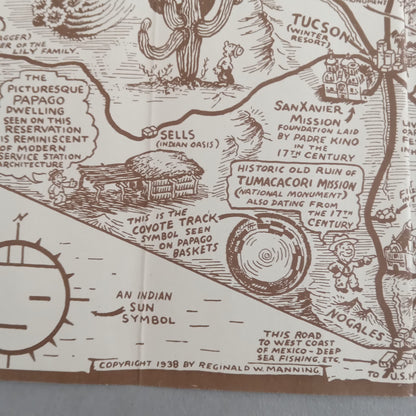 TUCSON
(WINTER
RESORT)
LILY FAMILY.
THE
PICTURESQUE
PAPAGO
DWELLING
SEEN ON THIS
RESERVATION
IS REMINISCENT
OF MODERN
SERVICE STATION
ARCHITECTURE
SELLS
(INDIAN OASIS)
SAN XAVIER
MISSION
FOUNDATION LAID
BY PADRE KINO
IN THE
17TH CENTURY
HISTORIC OLD RUIN OF
TUMACACORI MISSION
(NATIONAL MONUMENT)
ALSO DATING FROM
THE 17TH
CENTURY
THIS IS THE
COYOTE TRACK
SYMBOL SEEN
ON PAPAGO
BASKETS
N
AN INDIAN
SUN
SYMBOL
NOGALES
THIS ROAD
TO WEST COAST
OF MEXICO - DEEP
SEA FISHING, ETC
COPYRIGHT 1938 BY REGINALD W. MANNING
TO U.S.H